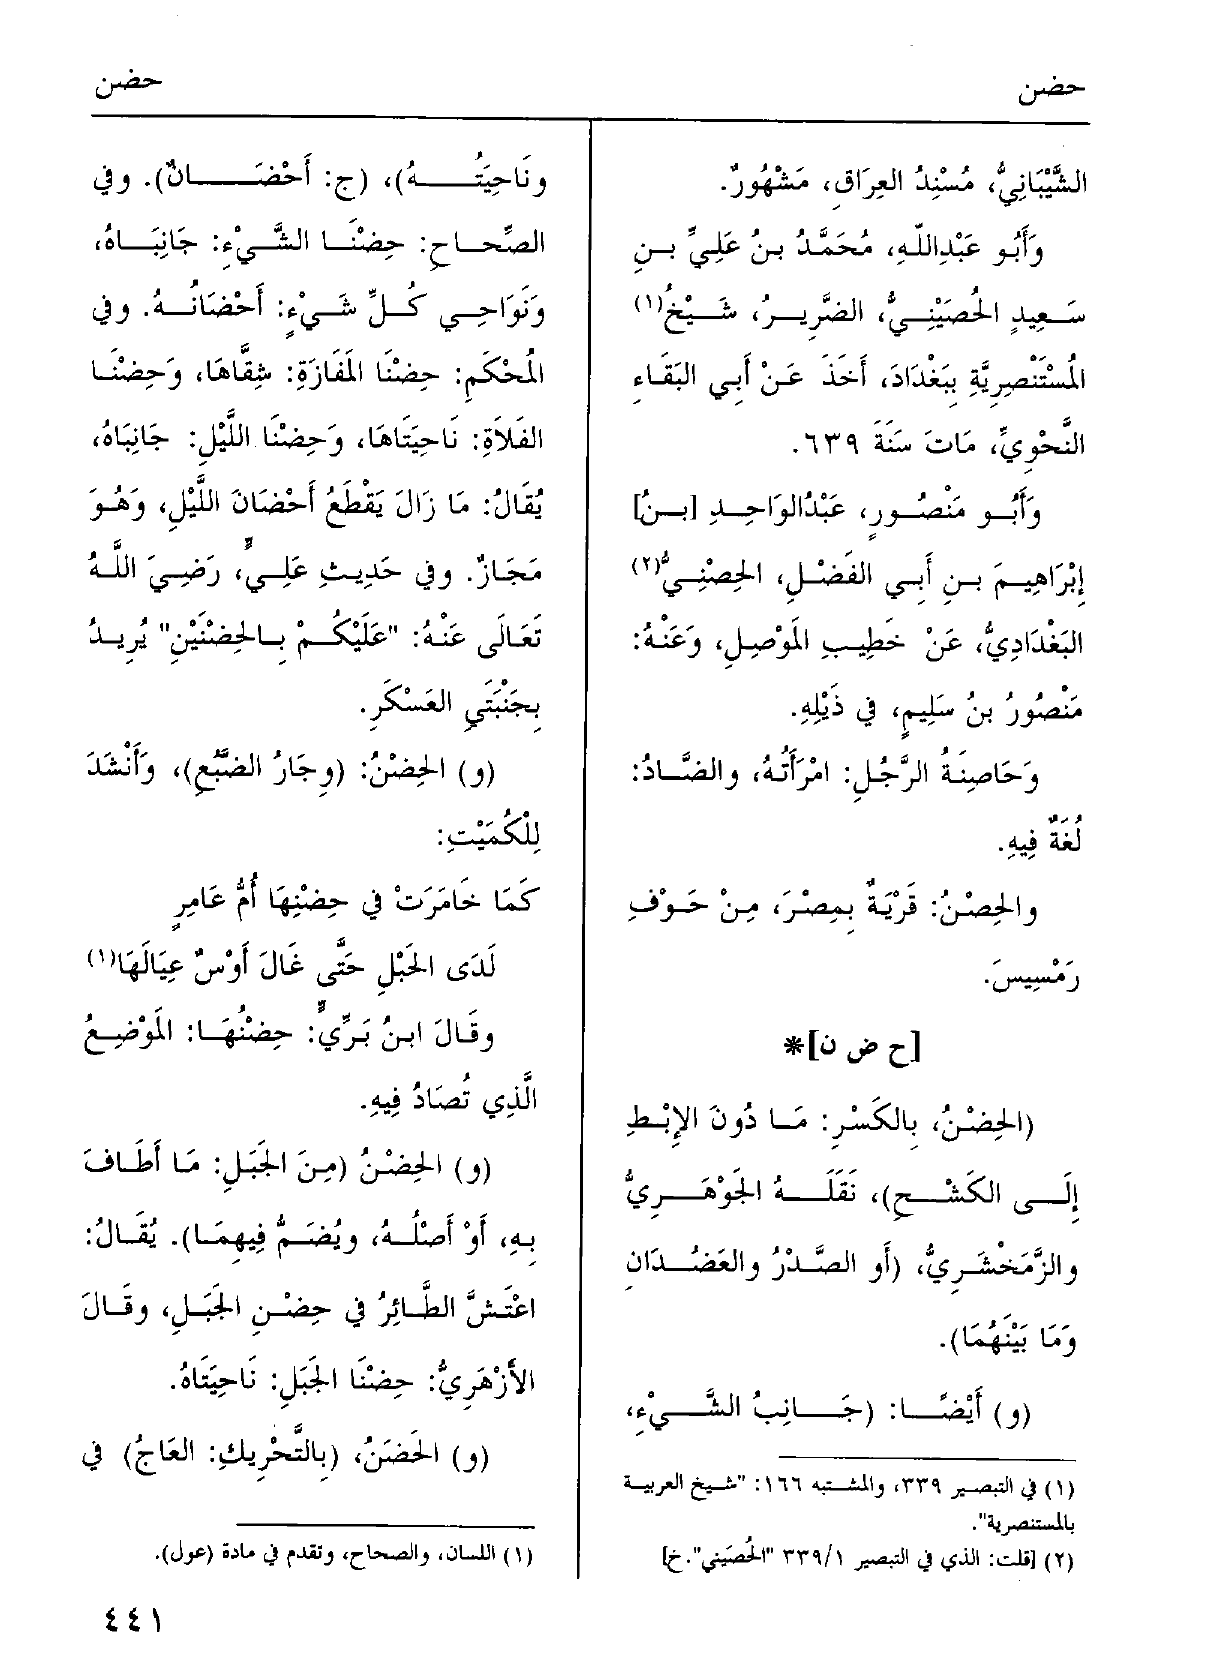 حضن
حضن
الشَّيْبَانِيُّ، مُسْنِدُ العِرَاقِ، مَشْهُورٌ.
وَأَبُو عَبْدِاللَّهِ، مُحَمَّدُ بنُ عَلِيِّ بنِ
سَعِيدٍ الحُصَيْنِيُّ، الضَّرِيرُ، شَيْخُ(١)
المُسْتَنْصِرِيَّةِ بِبَغْدَادَ، أَخَذَ عَنْ أَبِي البَقَاءِ
النَّحْوِيِّ، مَاتَ سَنَةَ ٦٣٩.
وَأَبُو مَنْصُورٍ، عَبْدُالوَاحِدِ [بنُ]
إِبْرَاهِيمَ بنِ أَبِي الفَضْلِ، الحِصْنِيُّ(٢)
البَغْدَادِيُّ، عَنْ خَطِيبِ المَوْصِلِ، وَعَنْهُ:
مَنْصُورُ بنُ سَلِيمٍ، فِي ذَيْلِهِ.
وَحَاصِنَةُ الرَّجُلِ: امْرَأَتُهُ، والضَّادُ:
لُغَةٌ فِيهِ.
والحِصْنُ: قَرْيَةٌ بِمِصْرَ، مِنْ حَوْفِ
رَمْسِيسَ.
[ح ض ن]*
(الحِضْنُ، بِالكَسْرِ: مَا دُونَ الإِبْطِ
إِلَى الكَشْحِ)، نَقَلَهُ الجَوْهَرِيُّ
والزَّمَخْشَرِيُّ، (أَو الصَّدْرُ والعَضُدَانِ
وَمَا بَيْنَهُمَا).
(و) أَيْضًا: (جَانِبُ الشَّيْءِ،
(١) في التبصير ٣٣٩، والمشتبه ١٦٦: "شيخ العربية
بالمستنصرية".
(٢) [قلت: الذي في التبصير ٣٣٩/١ "الحُصَيني".خ]
ونَاحِيَتُهُ)، (ج: أَحْضَانٌ). وفي
الصِّحاحِ: حِضْنَا الشَّيْءِ: جَانِبَاهُ،
وَنَوَاحِي كُلِّ شَيْءٍ: أَحْضَانُهُ. وفي
المُحْكَمِ: حِضْنَا المَفَازَةِ: شِقَّاهَا، وَحِضْنَا
الفَلاَةِ: نَاحِيَتَاهَا، وَحِضْنَا اللَّيْلِ: جَانِبَاهُ،
يُقَالُ: مَا زَالَ يَقْطَعُ أَحْضَانَ اللَّيْلِ، وَهُوَ
مَجَازٌ. وفي حَدِيثِ عَلِيٍّ، رَضِيَ اللَّهُ
تَعَالَى عَنْهُ: "عَلَيْكُمْ بِالحِضْنَيْنِ" يُرِيدُ
بِجَنْبَتَيِ العَسْكَرِ.
(و) الحِضْنُ: (وِجَارُ الضَّبُعِ)، وَأَنْشَدَ
لِلْكُمَيْتِ:
كَمَا خَامَرَتْ في حِضْنِهَا أُمُّ عَامِرٍ
لَدَى الحَبْلِ حَتَّى غَالَ أَوْسٌ عِيَالَهَا(١)
وقَالَ ابنُ بَرِّيٍّ: حِضْنُهَا: المَوْضِعُ
الَّذِي تُصَادُ فِيهِ.
(و) الحِضْنُ (مِنَ الجَبَلِ: مَا أَطَافَ
بِهِ، أَوْ أَصْلُهُ، ويُضَمُّ فِيهِمَا). يُقَالُ:
اعْتَشَّ الطَّائِرُ في حِضْنِ الجَبَلِ، وقَالَ
الأَزْهَرِيُّ: حِضْنَا الجَبَلِ: نَاحِيَتَاهُ.
(و) الحَضَنُ، (بِالتَّحْرِيكِ: العَاجُ) في
(١) اللسان، والصحاح، وتقدم في مادة (عول).
٤٤١